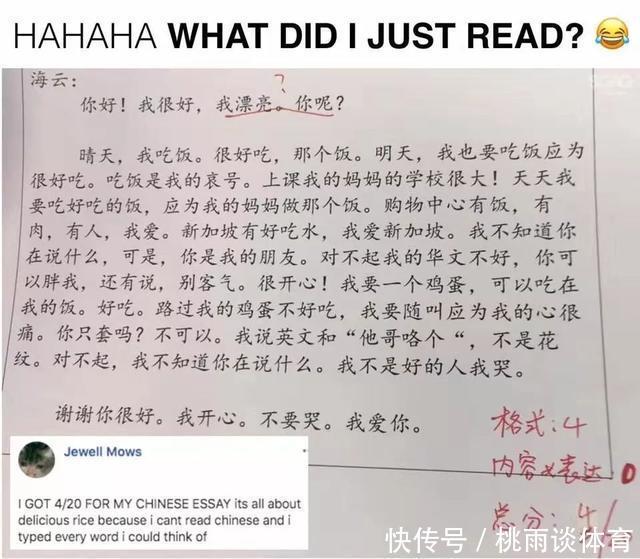 HAHAHA WHAT DID I JUST READ? 😂
海云:
?
你好!我很好,我漂亮。你呢?
晴天,我吃饭。很好吃,那个饭。明天,我也要吃饭应为
很好吃。吃饭是我的哀号。上课我的妈妈的学校很大!天天我
要吃好吃的饭,应为我的妈妈做那个饭。购物中心有饭,有
肉,有人,我爱。新加坡有好吃水,我爱新加坡。我不知道你
在说什么,可是,你是我的朋友。对不起我的华文不好,你可
以胖我,还有说,别客气。很开心!我要一个鸡蛋,可以吃在
我的饭。好吃。路过我的鸡蛋不好吃,我要随叫应为我的心很
痛。你只套吗?不可以。我说英文和“他哥咯个“,不是花
纹。对不起,我不知道你在说什么。我不是好的人我哭。
谢谢你很好。我开心。不要哭。我爱你。
格式:4
内容x表达:0
总分:4/
Jewell Mows
I GOT 4/20 FOR MY CHINESE ESSAY its all about
delicious rice because i cant read chinese and i
typed every word i could think of
快传号/桃雨谈体育